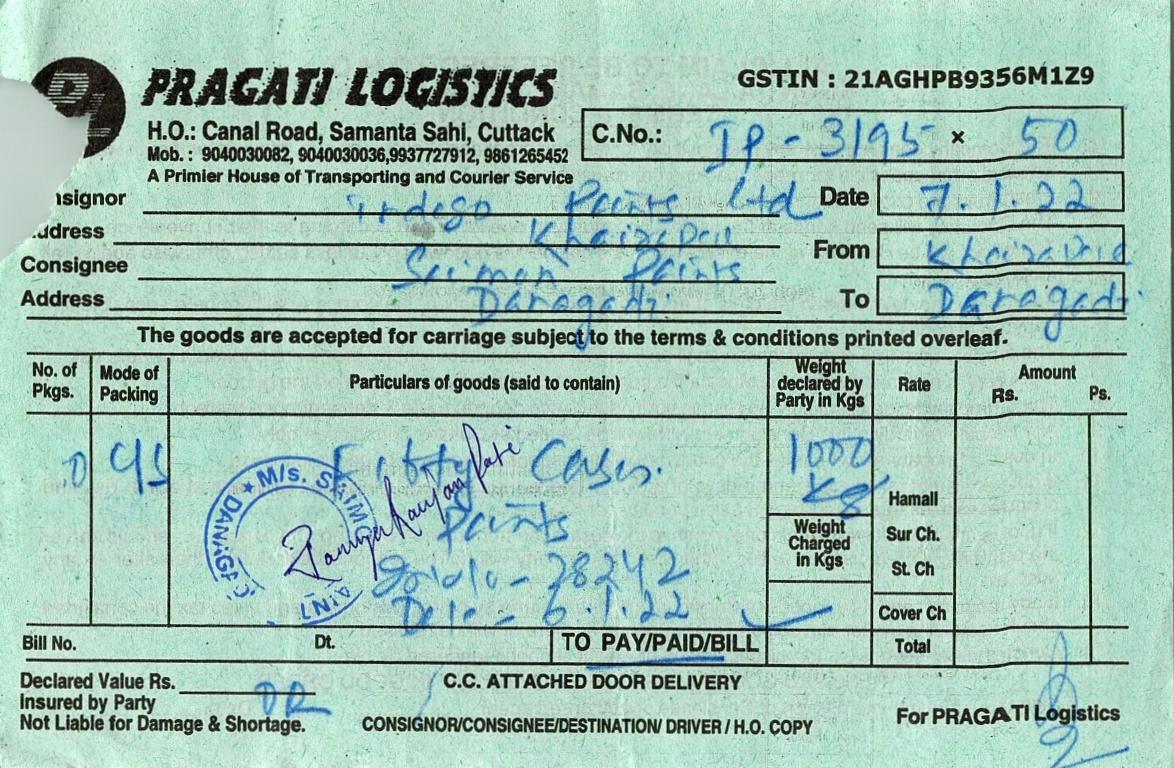 PRAGATI LOGISTICS
GSTIN : 21AGHPB9356M1Z9
H.O.: Canal Road, Samanta Sahi, Cuttack
Mob. : 9040030082, 9040030036,9937727912, 9861265452
A Primier House of Transporting and Courier Service
C.No.: IP - 3195 × 50
nsignor Indego Paints Ltd Date 7.1.22
ddress Khairapur From
Consignee Saimon Paints
Address Danagadi To Danagadi
The goods are accepted for carriage subject to the terms & conditions printed overleaf.
No. of Pkgs. Mode of Packing Particulars of goods (said to contain) Weight declared by Party in Kgs Rate Amount Rs. Ps.
0 C/S Fifty Cases. 1000 Kg
Paints
28242
Date - 6.1.22
M/s. SAIMO
Hamall
Weight Charged in Kgs
Sur Ch.
St. Ch
Cover Ch
Bill No. Dt. TO PAY/PAID/BILL Total
Declared Value Rs. C.C. ATTACHED DOOR DELIVERY
Insured by Party
Not Liable for Damage & Shortage. CONSIGNOR/CONSIGNEE/DESTINATION/ DRIVER / H.O. COPY For PRAGATI Logistics